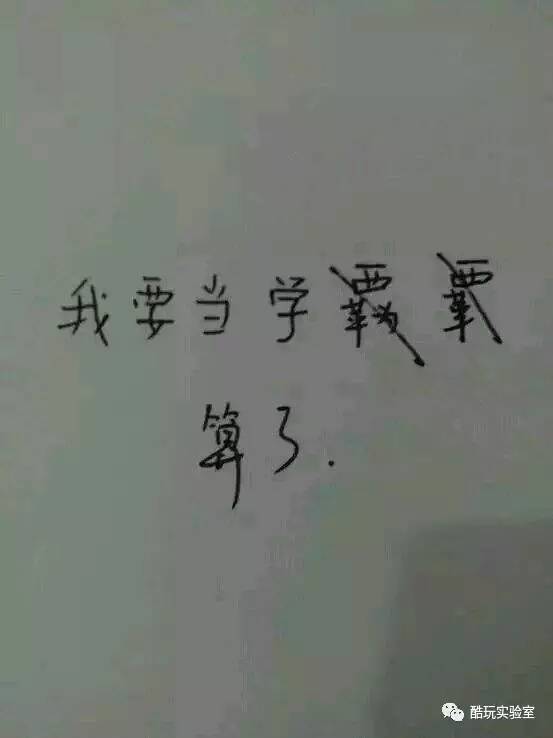 我要当学
算了.
酷玩实验室